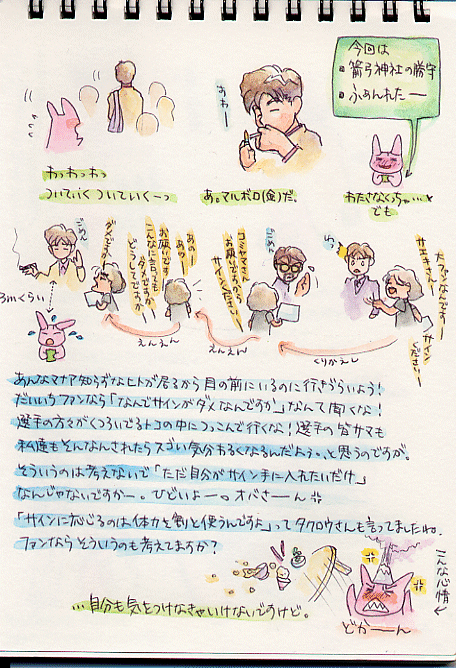 今回は
・箭弓神社の勝守
・ふぁんれたー
わっわっわっ
ついていくついていくーっ
あわー
あ。マルボロ(金)だ。
わたさなくっちゃ…。
でも
3mくらい
ごめん
ダメですかー
あのー
お願いですー
こんなに言っても
ダメですかー
どうしてですかー
ごめん
コミヤマさんー
お願いですからー
サインください
わ。
大ファンなんですー
サエキさんー
サイン
くださいー
えんえん
えんえん
くりかえし
あんなマナア知らずなヒトが居るから目の前にいるのに行きづらいよう!
だいいちファンなら「なんでサインがダメなんですか」なんて聞くな!
選手の方々がくつろいでるトコの中につっこんで行くな!選手の皆サマも
私達もそんなんされたらスゴい気分わるくなるんだよう。と思うのですが。
そういうのは考えないで「ただ自分がサイン手に入れたいだけ」
なんじゃないですかー。ひどいよーっオバさーん
「サインに応じるのは体力を割と使うんですよ」ってタクロウさんも言ってましたね。
ファンならそういうのも考えてますか?
こんな心情
どかーーん
…自分も気をつけなきゃいけないですけど。